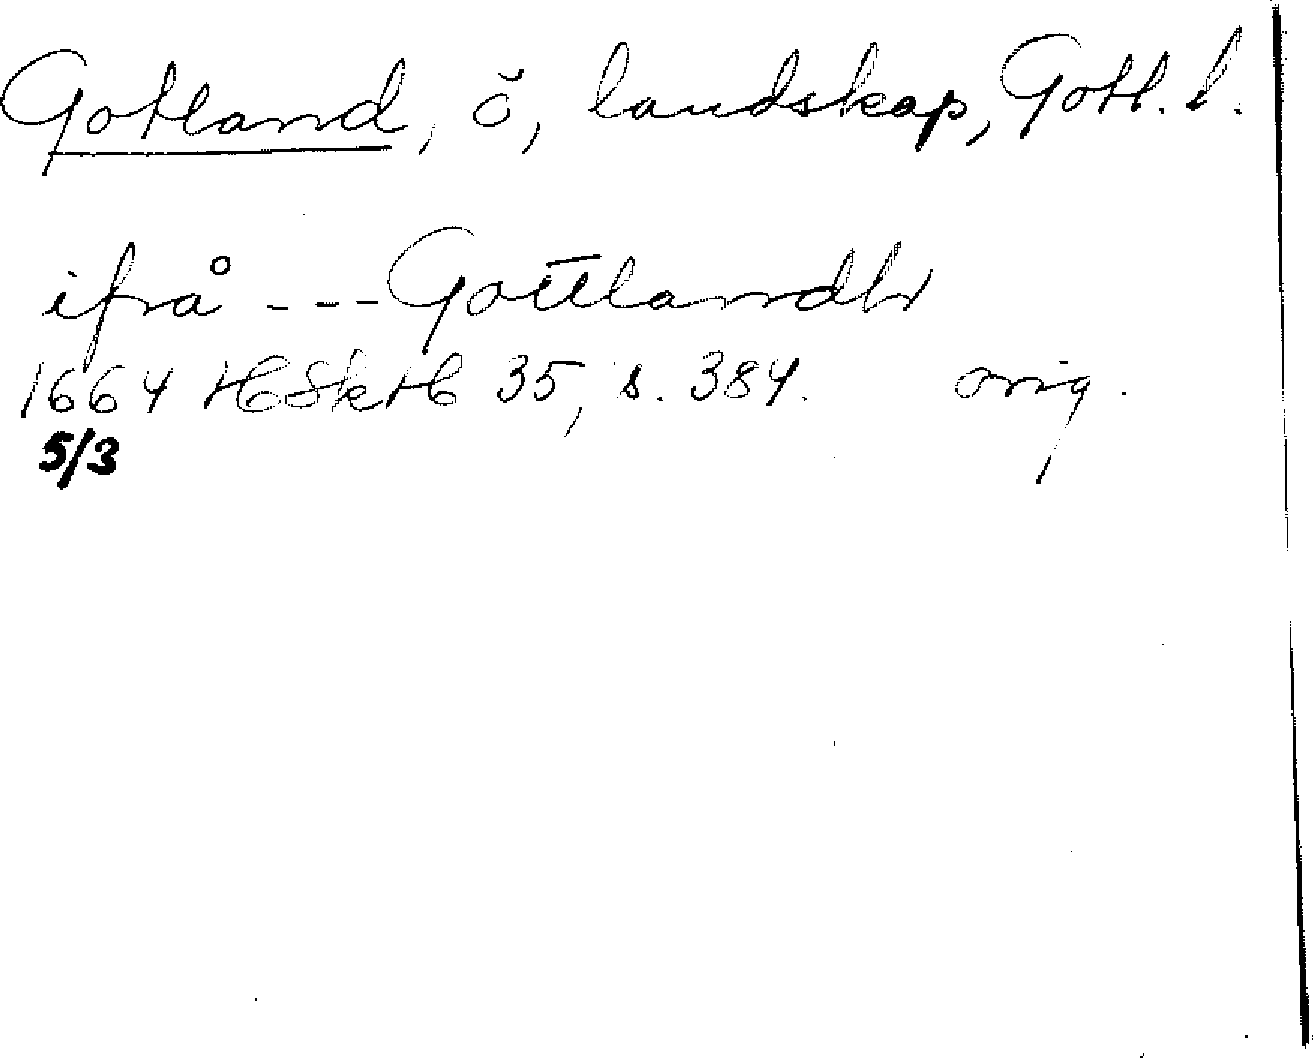 Gotland, ö, landskap, Gotl. l.
ifrå --- Gottlandh
1664 HSkH 35, s. 384. orig.
5/3